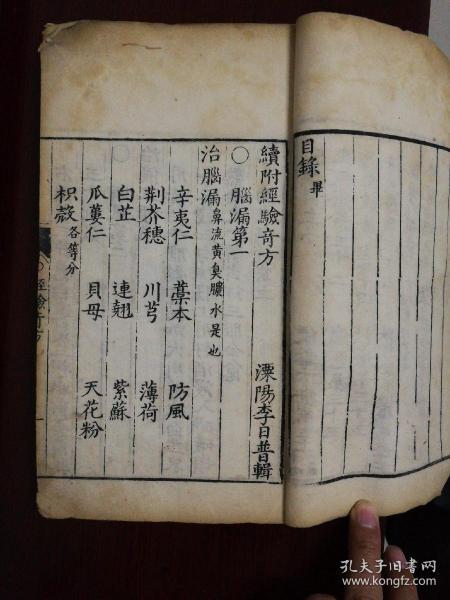 目錄畢
續附經驗奇方
溧陽李日普輯
○腦漏第一
治腦漏鼻流黄臭膿水是也
辛夷仁 藁本 防風
荆芥穗 川芎 薄荷
白芷 連翹 紫蘇
瓜蔞仁 貝母 天花粉
枳殼各等分
經驗奇方
一
孔夫子旧书网
www.kongfz.com